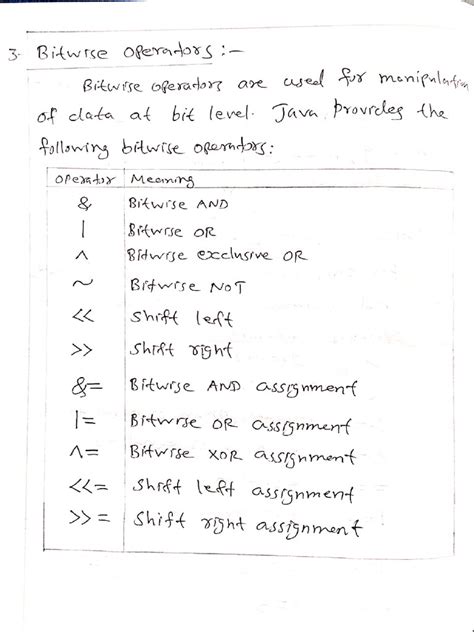 3. Bitwise operators :-
Bitwise operators are used for manipulation
of data at bit level. Java provides the
following bitwise operators:
Operator Meaning
& Bitwise AND
| Bitwise OR
^ Bitwise exclusive OR
~ Bitwise NOT
<< Shift left
>> Shift right
&= Bitwise AND assignment
|= Bitwise OR assignment
^= Bitwise XOR assignment
<<= Shift left assignment
>>= Shift right assignment